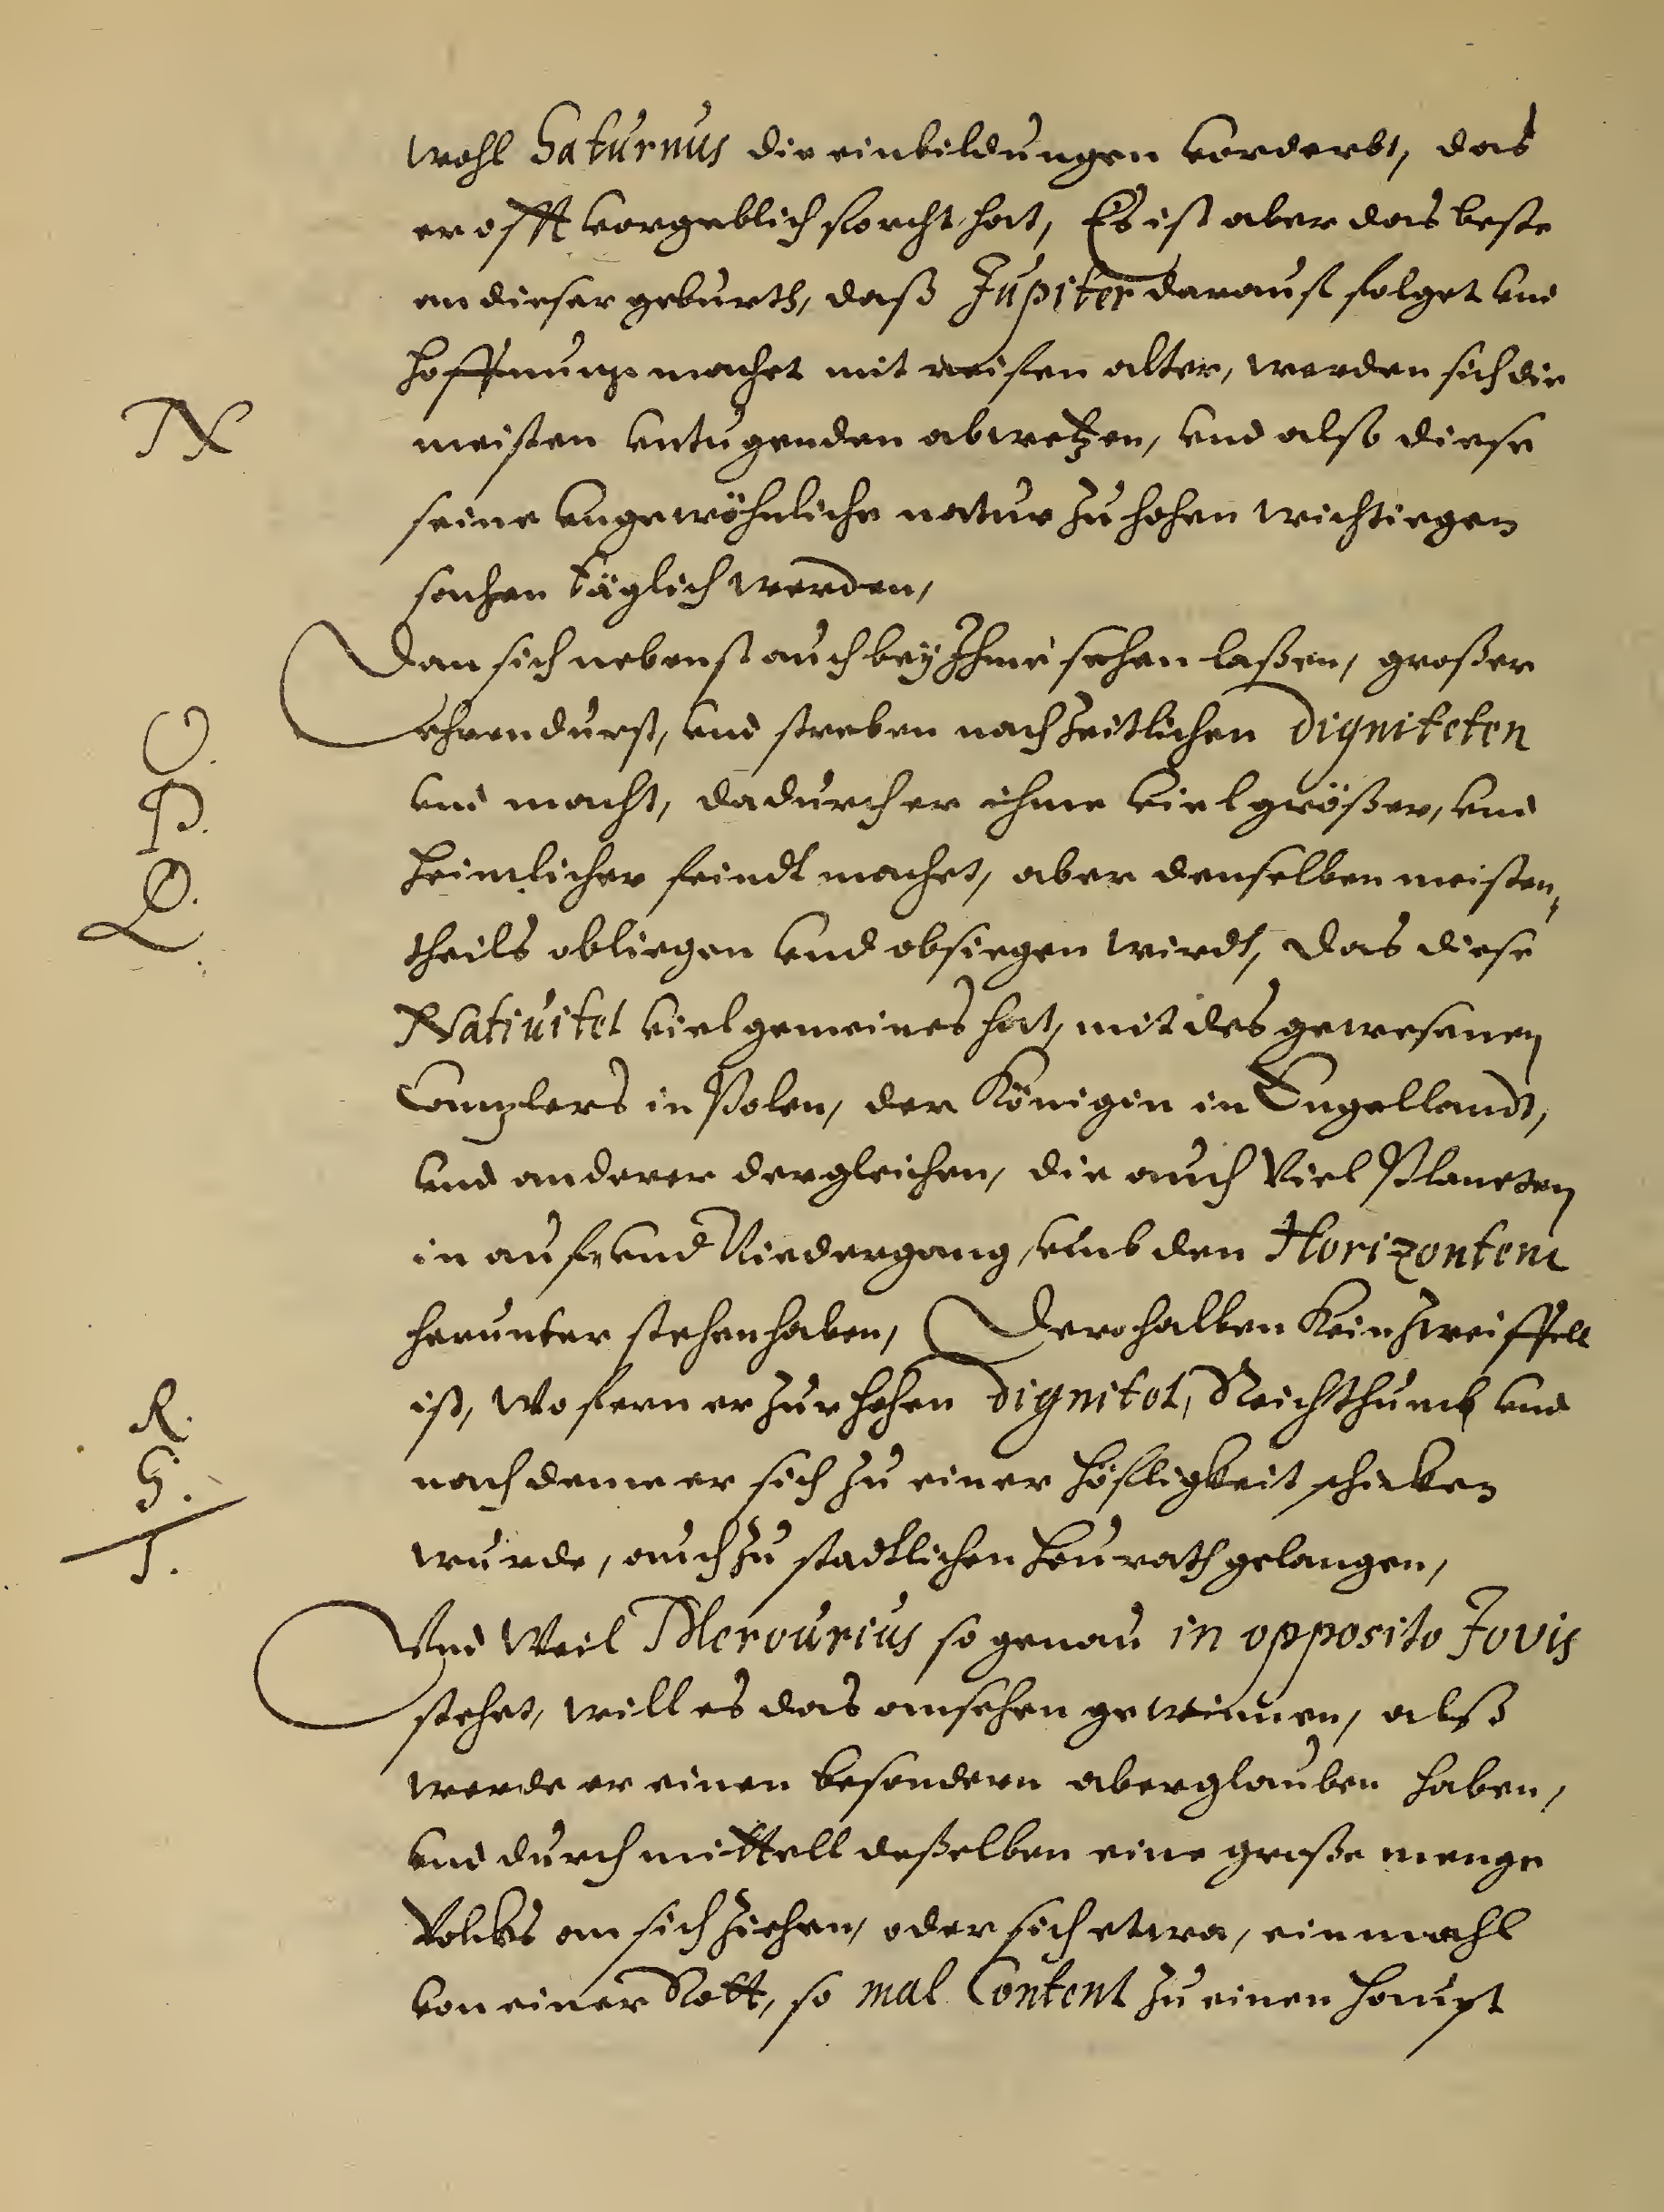 wohl Saturnus die einbildungen vorderbt, das
er offt vorgeblich forcht hat, Es ist aber das beste
an dieser geburth, daß Jupiter darauf folget vnd
Hoffnung machet mit reifen alter, werden sich die
N
meisten vntugenden abwetzen, vnd also diese
seine vngewöhnliche natur zu hohen wichtiegen
sachen täglich werden,
Dan sich nebenst auch bey Ihme sehen laßen, großer
O.
ehrendurst, vnd streben nach zeitlichen digniteten
P.
vnd macht, dadurch er ihme viel größer, vnd
Q.
heimlicher feindt machet, aber denselben meisten
theils obliegen vnd obsiegen wirdt, das diese
Nativitet viel gemeines hat, mit des gewesenen
Canzlers in Polen, der Königin in Engellandt,
vnd anderer dergleichen, die auch Viel Planeten
in auf vnd Niedergang, vmb den Horizontem
herunter stehen haben, Derohalben Kein zweiffell
R.
ist, wofern er zur hohen dignitet, Reichthumb vnd
S.
nach deme er sich zu einer höfligkeit schicken
T.
wurde, auch zu stadtlichen heurath gelangen,
Vnd Weil Mercurius so genau in opposito Jovis
stehet, will es das ansehen gewinnen, alß
werde er einen besondern aberglauben haben,
vnd durch mittell deßelben eine große menge
Volcks an sich ziehen, oder sich etwa, einmahl
von einer Rott, so mal Content zu einen haupt